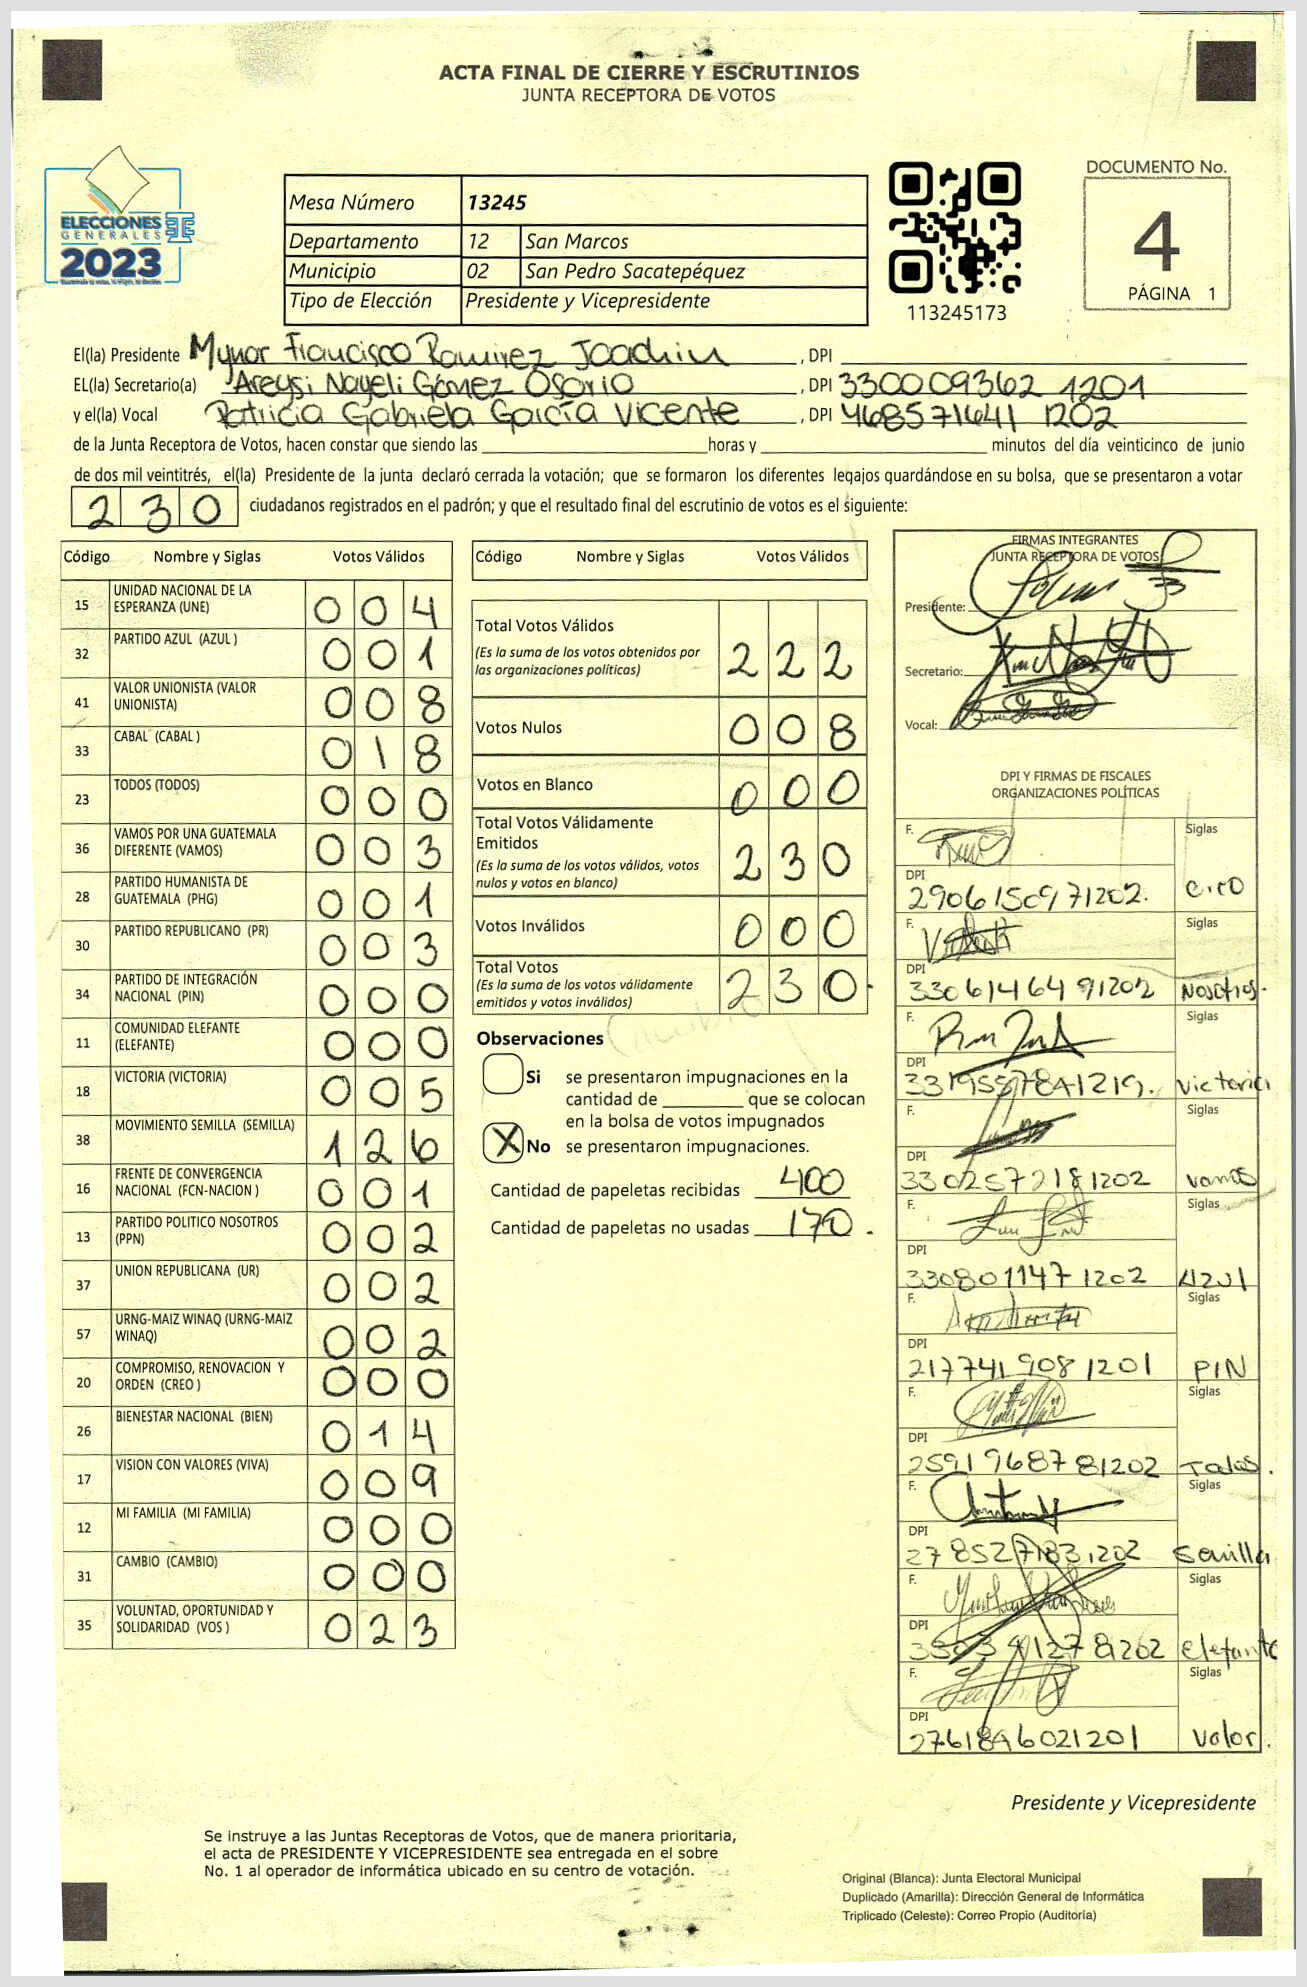 ACTA FINAL DE CIERRE Y ESCRUTINIOS
JUNTA RECEPTORA DE VOTOS
ELECCIONES
GENERALES
2023
Mesa Número 13245
Departamento 12 San Marcos
Municipio 02 San Pedro Sacatepéquez
Tipo de Elección Presidente y Vicepresidente
113245173
DOCUMENTO No.
4
PÁGINA 1
El(la) Presidente Mynor Francisco Ramirez Joachin, DPI
EL(la) Secretario(a) Areysi Nayeli Gómez Osorio, DPI 330009362 1201
y el(la) Vocal Patricia Gabriela García Vicente, DPI 468571641 1202
de la Junta Receptora de Votos, hacen constar que siendo las horas y minutos del día veinticinco de junio
de dos mil veintitrés, el(la) Presidente de la junta declaró cerrada la votación; que se formaron los diferentes legajos guardándose en su bolsa, que se presentaron a votar
230 ciudadanos registrados en el padrón; y que el resultado final del escrutinio de votos es el siguiente:
Código Nombre y Siglas Votos Válidos
15 UNIDAD NACIONAL DE LA ESPERANZA (UNE) 004
32 PARTIDO AZUL (AZUL ) 001
41 VALOR UNIONISTA (VALOR UNIONISTA) 008
33 CABAL (CABAL ) 018
23 TODOS (TODOS) 000
36 VAMOS POR UNA GUATEMALA DIFERENTE (VAMOS) 003
28 PARTIDO HUMANISTA DE GUATEMALA (PHG) 001
30 PARTIDO REPUBLICANO (PR) 003
34 PARTIDO DE INTEGRACIÓN NACIONAL (PIN) 000
11 COMUNIDAD ELEFANTE (ELEFANTE) 000
18 VICTORIA (VICTORIA) 005
38 MOVIMIENTO SEMILLA (SEMILLA) 126
16 FRENTE DE CONVERGENCIA NACIONAL (FCN-NACION ) 001
13 PARTIDO POLITICO NOSOTROS (PPN) 002
37 UNION REPUBLICANA (UR) 002
57 URNG-MAIZ WINAQ (URNG-MAIZ WINAQ) 002
20 COMPROMISO, RENOVACION Y ORDEN (CREO ) 000
26 BIENESTAR NACIONAL (BIEN) 014
17 VISION CON VALORES (VIVA) 009
12 MI FAMILIA (MI FAMILIA) 000
31 CAMBIO (CAMBIO) 000
35 VOLUNTAD, OPORTUNIDAD Y SOLIDARIDAD (VOS ) 023
Código Nombre y Siglas Votos Válidos
Total Votos Válidos
(Es la suma de los votos obtenidos por
las organizaciones políticas) 222
Votos Nulos 008
Votos en Blanco 000
Total Votos Válidamente
Emitidos
(Es la suma de los votos válidos, votos
nulos y votos en blanco) 230
Votos Inválidos 000
Total Votos
(Es la suma de los votos válidamente
emitidos y votos inválidos) 230.
Observaciones
Si se presentaron impugnaciones en la
cantidad de que se colocan
en la bolsa de votos impugnados
X No se presentaron impugnaciones.
Cantidad de papeletas recibidas 400
Cantidad de papeletas no usadas 170.
FIRMAS INTEGRANTES
JUNTA RECEPTORA DE VOTOS
Presidente:
Secretario:
Vocal:
DPI Y FIRMAS DE FISCALES
ORGANIZACIONES POLÍTICAS
F. Siglas
DPI
2906150971202.
F. Siglas
DPI
3306146491202 Nosotros.
F. Siglas
DPI
Victoria
F. Siglas
DPI
3302572181202 vamos
F. Siglas
DPI
3308011471202 Azul
F. Siglas
DPI
2177419081201 PIN
F. Siglas
DPI
2591968781202 Todos.
F. Siglas
DPI
Semilla
F. Siglas
DPI
elefante
F. Siglas
DPI
2761896021201 Valor.
Presidente y Vicepresidente
Se instruye a las Juntas Receptoras de Votos, que de manera prioritaria,
el acta de PRESIDENTE Y VICEPRESIDENTE sea entregada en el sobre
No. 1 al operador de informática ubicado en su centro de votación.
Original (Blanca): Junta Electoral Municipal
Duplicado (Amarilla): Dirección General de Informática
Triplicado (Celeste): Correo Propio (Auditoría)